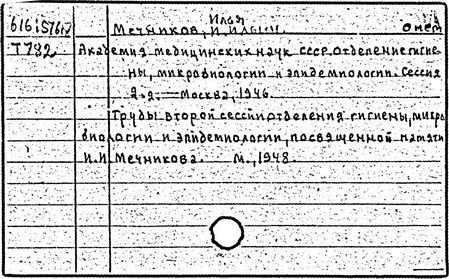 Илья
616:57617 Мечников, И. Ильич. о нем
Т782 Академия медицинских наук СССР. Отделение гигие-
ны, микробиологии и эпидемиологии. Сессия
2-я. — Москва, 1946.
Труды второй сессии отделения гигиены, микро
биологии и эпидемиологии, посвященной памяти
И.И Мечникова. М., 1948.